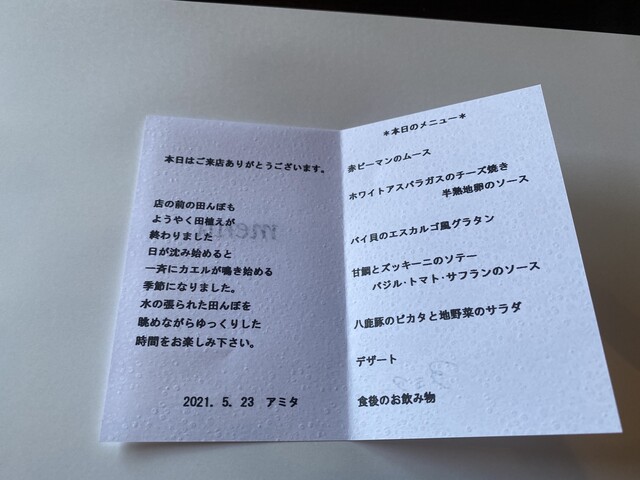 本日はご来店ありがとうございます。
店の前の田んぼも
ようやく田植えが
終わりました
日が沈み始めると
一斉にカエルが鳴き始める
季節になりました。
水の張られた田んぼを
眺めながらゆっくりした
時間をお楽しみ下さい。
2021. 5. 23 アミタ
menu
＊本日のメニュー＊
赤ピーマンのムース
ホワイトアスパラガスのチーズ焼き
半熟地卵のソース
バイ貝のエスカルゴ風グラタン
甘鯛とズッキーニのソテー
バジル・トマト・サフランのソース
八鹿豚のピカタと地野菜のサラダ
デザート
食後のお飲み物